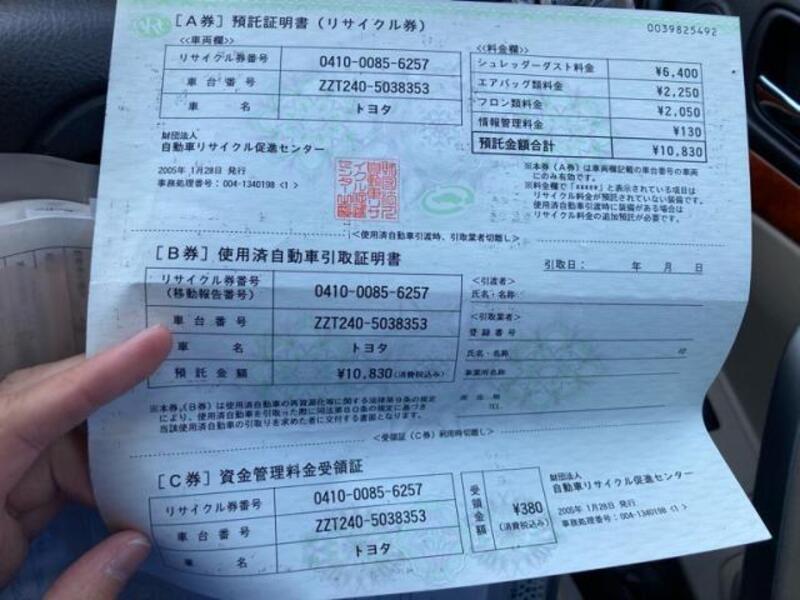 [A券] 預託証明書(リサイクル券)
0039825492
<<車両欄>>
リサイクル券番号 0410-0085-6257
車台番号 ZZT240-5038353
車名 トヨタ
<<料金欄>>
シュレッダーダスト料金 ¥6,400
エアバッグ類料金 ¥2,250
フロン類料金 ¥2,050
情報管理料金 ¥130
預託金額合計 ¥10,830
財団法人
自動車リサイクル促進センター
2005年 1月28日 発行
事務処理番号:004-1340198 <1>
※本券(A券)は車両欄記載の車台番号の車両
にのみ有効です。
※料金欄で「*****」と表示されている項目は
リサイクル料金が預託されていない装備です。
使用済自動車引渡時に装備がある場合は
リサイクル料金の追加預託が必要です。
<使用済自動車引渡時、引取業者切離し>
[B券] 使用済自動車引取証明書
引取日: 年 月 日
リサイクル券番号
(移動報告番号) 0410-0085-6257
車台番号 ZZT240-5038353
車名 トヨタ
預託金額 ¥10,830(消費税込み)
<引渡者>
氏名・名称
<引取業者>
登録番号
氏名・名称 印
事業所名称
TEL
※本券(B券)は使用済自動車の再資源化等に関する法律第9条の規定
により、使用済自動車を引取った際に同法第80条の規定に基づき
当該使用済自動車の引取りを求めた者に交付する書面となります。
<受領証(C券)利用時切離し>
[C券] 資金管理料金受領証
リサイクル券番号 0410-0085-6257
車台番号 ZZT240-5038353
車名 トヨタ
受領金額 ¥380
(消費税込み)
財団法人
自動車リサイクル促進センター
2005年 1月28日 発行
事務処理番号:004-1340198 <1>